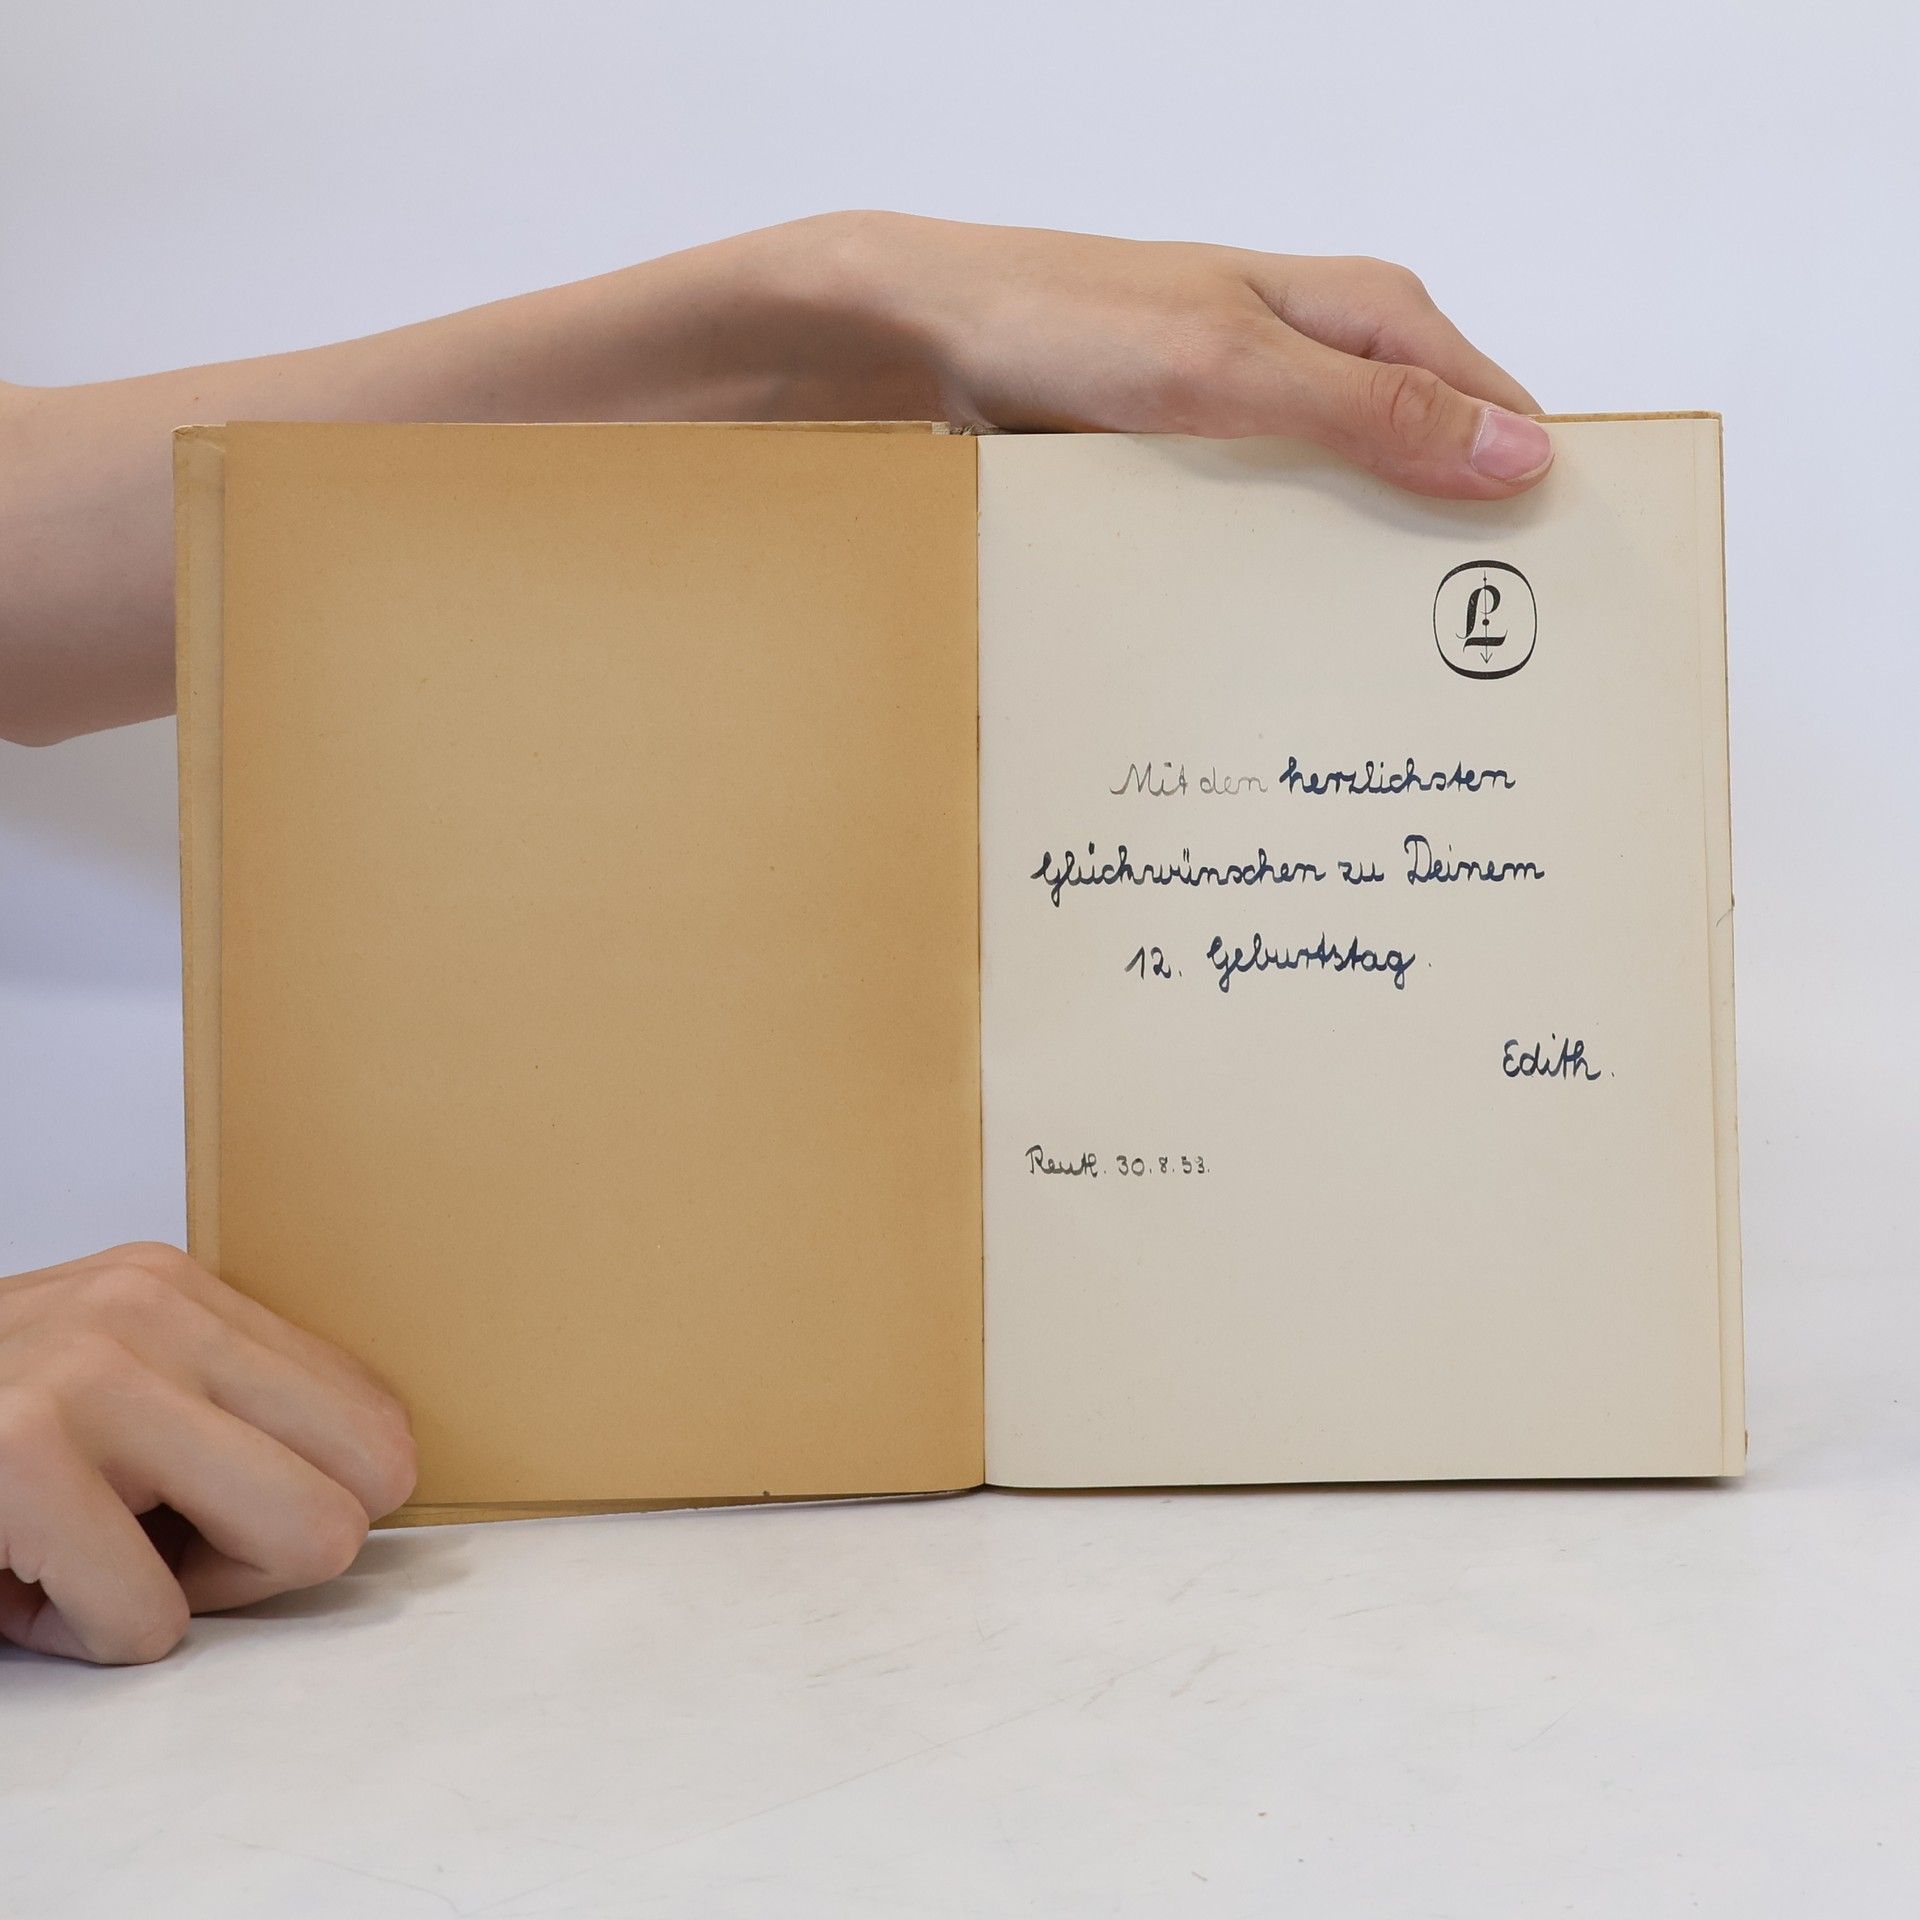 L
Mit den herzlichsten
Glückwünschen zu Deinem
12. Geburtstag.
Edith.
Reutl. 30.8.53.